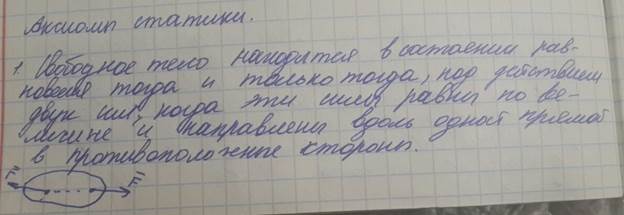 Аксиомы статики.
1. Свободное тело находится в состоянии рав-
новесия тогда и только тогда, под действием
двух сил, когда эти силы равны по ве-
личине и направлены вдоль одной прямой
в противоположные стороны.
F F